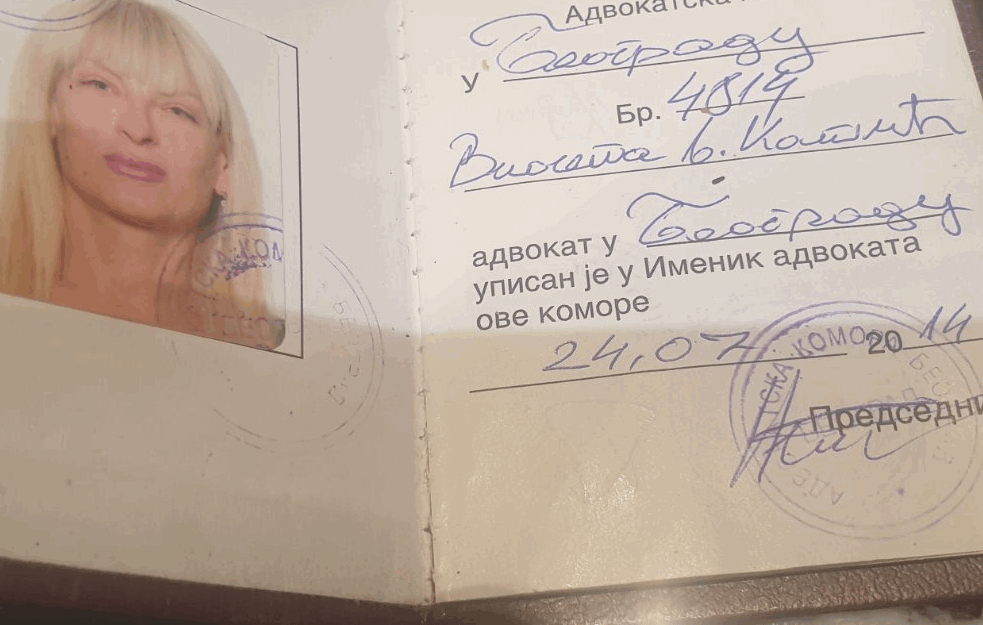 Адвокатска
у Београду
Бр. 4814
Виолета в.
адвокат у Београду
уписан је у Именик адвоката
ове коморе
24.07 2014
Председни